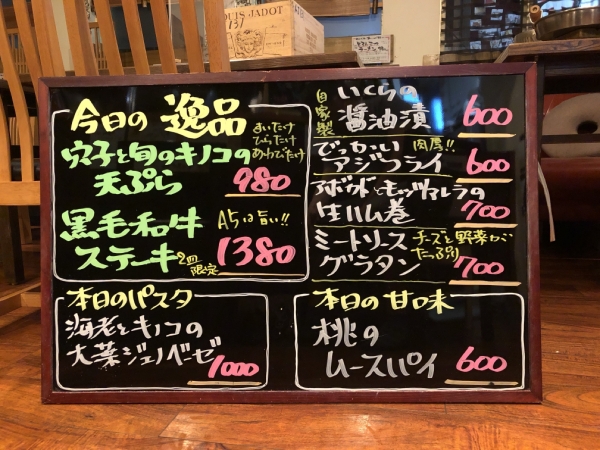 LOUIS JADOT
今日の 逸品
穴子と旬のキノコの
天ぷら 980
黒毛和牛 A5は旨い!!
ステーキ 2皿限定 1380
自家製 いくらの
醤油漬 600
でっかい 肉厚!!
アジフライ 600
アボガドとモッツァレラの
生ハム巻 700
ミートソース チーズと野菜が
グラタン たっぷり 700
本日のパスタ
海老とキノコの
大葉ジェノベーゼ 1000
本日の甘味
桃の
ムースパイ 600